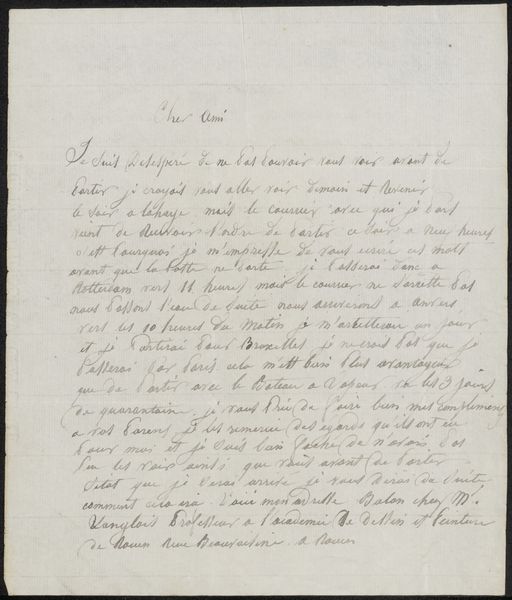 Cher Ami
Je suis desesperé de ne pas pouvoir vous voir avant de
partir je croyois vous aller voir demain et revenir
le soir a lahaye mais le courrier avec qui je pars
vient de recevoir l'ordre de partir ce soir a neuf heures
c'ett pourquoi je m'empresse de vous ecrire ces mots
avant que la Poste ne parte je passerai donc a
Rotterdam vers 11 heures mais le courrier ne s'arrette pas
nous passons l'eau de suite nous arriverons a anvers
vers les 10 heures du matin je m'arretterai un jour
et je partirai pour Bruxelles je ne crois pas que je
passerai par Paris cela m'ett bien plus avantageux
que de partir avec le Bateau a Vapeur les 3 jours
de quarantaine je vous prie de faire bien mes complimens
a vos parens et les remercie des egards qu'ils ont eu
pour moi et je suis bien faché de n'avoir pas
pu les voir ainsi que vous avant de partir
sitot que je serai arrivé je vous dirai de suite
comment cela ira Voici mon adresse Balan chez Mr.
Langlois Professeur a l'academie de dessin et Peinture
de Rouen Rue Beauvoisine a Rouen